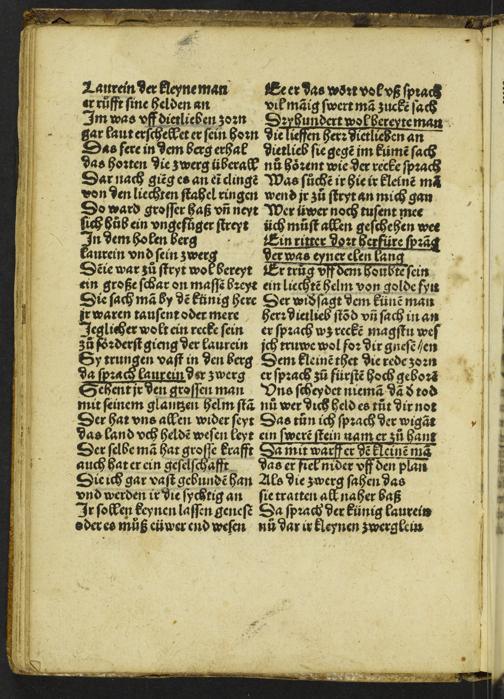 Laurein der kleyne man
er rüfft sine helden an
Im was vff dietlieben zorn
gar laut erschellet er sein horn
Das fere in dem berg erhal
das horten die zwerg überall
Dar nach gieg es an eī clingē
von den liechten stahel ringen
Do ward grosser haß vn̄ neyt
sich hůb ein vngefüger streyt
In dem holen berg
laurein vnd sein zwerg
Dēie war zů stryt wol bereyt
ein große schar on massē breyt
Die sach mā by dē künig here
jr waren tausent oder mere
Jeglicher wolt ein recke sein
zů förderst gieng der laurein
Sy trungen vast in den berg
da sprach laurein der zwerg
Sehent jr den grossen man
mit seinem glantzen helm stā
Der hat vns allen wider seyt
das land vch heldē wesen leyt
Der selbe mā hat grosse krafft
auch hat er ein geselschafft
Die ich gar vast gebundē han
vnd werden ir die sychtig an
Ir sollen keynen lassen genesē
oder es můß eüwer end wesen
Ee er das wort vol vß sprach
vil māig swert mā zuckē sach
Dryhundert wol bereyte man
die lieffen herr dietlieben an
dietlieb sie gegē im kümē sach
nů hörent wie der recke sprach
Was sůchē ir hie ir kleinē mā
wend jr zů stryt an mich gan
Wer üwer noch tusent mee
üch můst allen geschehen wee
Ein ritter dort herfüre sprāg
der was eyner elen lang
Er trůg vff dem houbte sein
ein liechtē helm von golde fyn
Der widsagt dem künē man
herr dietlieb stōd vn̄ sach in an
er sprach wz reckē magstu wes
ich truwe wol for dir gnesē//en
Dem kleinē thet die rede zorn
er sprach zů fürstē hoch geborē
Vns scheydet niemā dā d tod
nů wer dich held es tůt dir not
Das tůn ich sprach der wigāt
ein swerē stein nam er zů hant
Da mit warff er dē kleinē mā
das er fiel nider vff den plan
Als die zwerg sahen das
sie tratten all naher baß
Da sprach der künig laurein
nů dar ir kleynen zwerglein